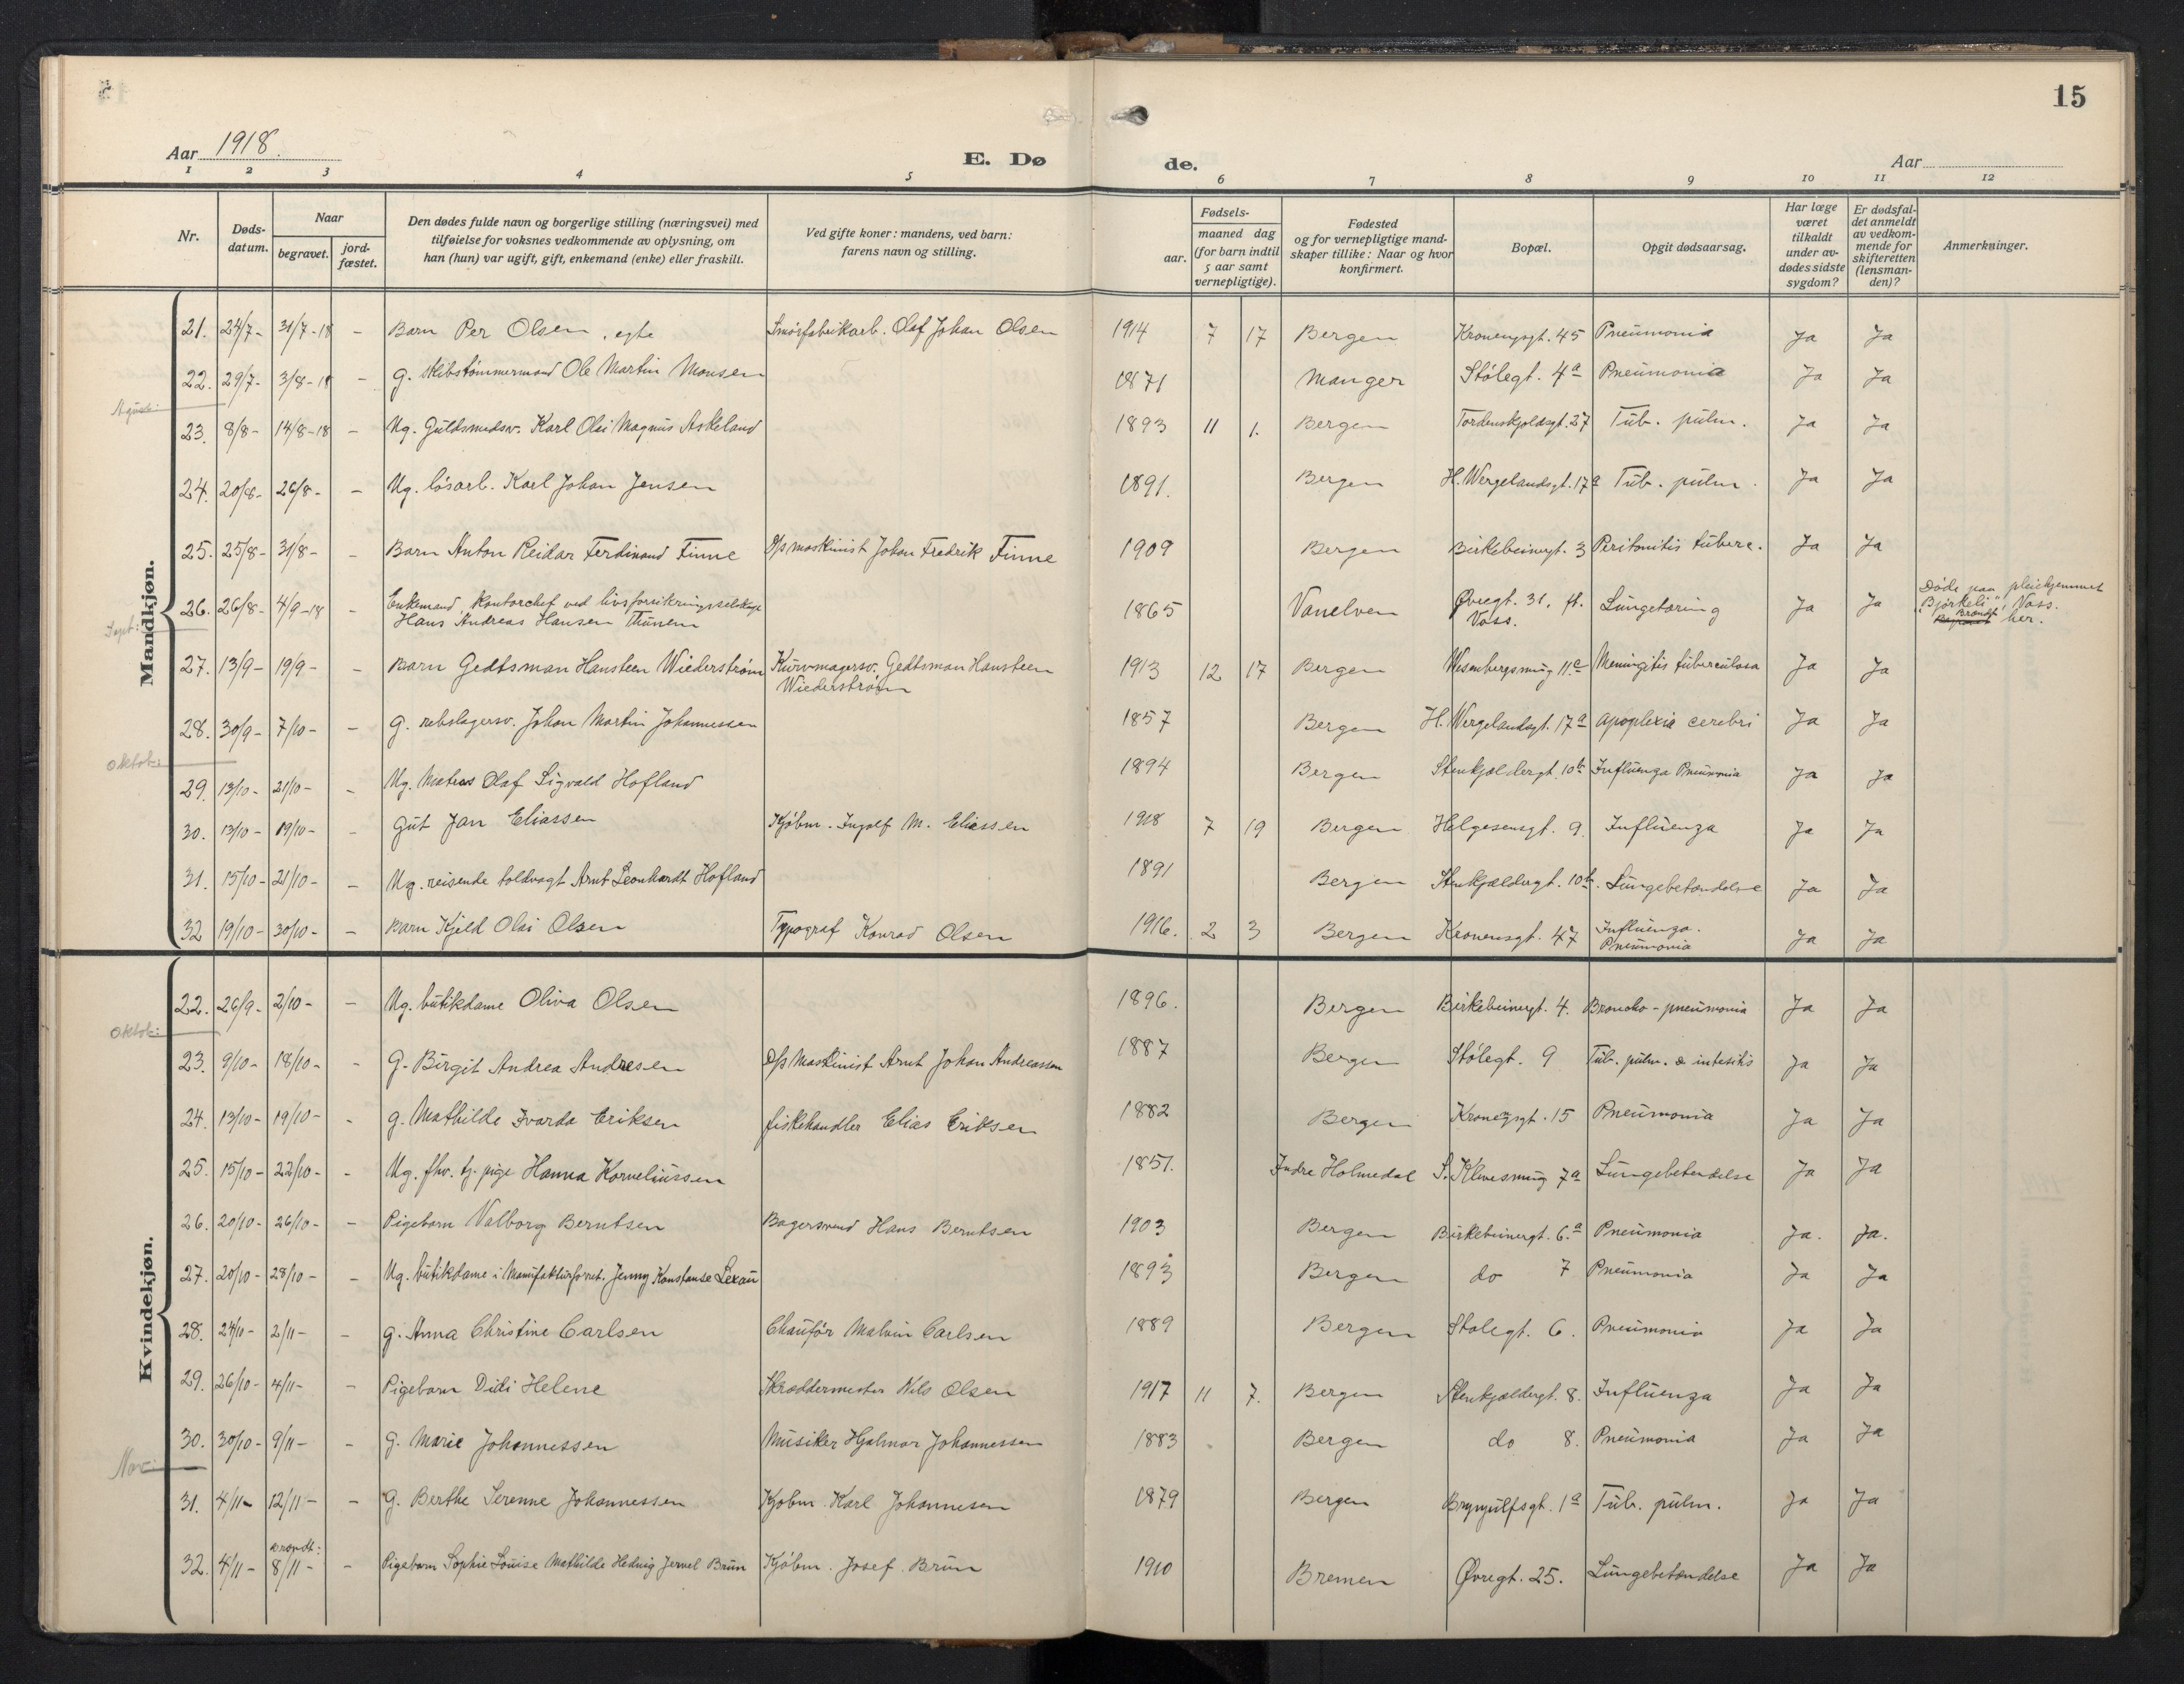 15
Aar 1918.
E. Dø de.
Aar
1 2 3 4 5 6 7 8 9 10 11 12
Nr.
Døds-
datum.
Naar
begravet.
jord-
fæstet.
Den dødes fulde navn og borgerlige stilling (næringsvei) med
tilføielse for voksnes vedkommende av oplysning, om
han (hun) var ugift, gift, enkemand (enke) eller fraskilt.
Ved gifte koner: mandens, ved barn:
farens navn og stilling.
aar.
Fødsels-
maaned dag
(for barn indtil
5 aar samt
vernepligtige).
Fødested
og for vernepligtige mand-
skaper tillike: Naar og hvor
konfirmert.
Bopæl.
Opgit dødsaarsag.
Har læge
været
tilkaldt
under av-
dødes sidste
sygdom?
Er dødsfal-
det anmeldt
av vedkom-
mende for
skifteretten
(lensman-
den)?
Anmerkninger.
Mandkjøn.
21. 24/7- 31/7-18 - Barn Per Olsen, egte Smörfabrikarb. Olaf Johan Olsen 1914 7 17 Bergen Kronengsgt. 45 Pneumonia Ja Ja
22. 29/7- 3/8-18 - G. skibstömmermand Ole Martin Monsen 1871 Manger Stölegt. 4a Pneumonia Ja Ja
August:
23. 8/8- 14/8-18 - Ug. Guldsmedsv. Karl Olai Magnus Askeland 1893 11 1. Bergen Tordenskjoldsgt. 27 Tub. pulm. Ja Ja
24. 20/8- 26/8- - Ug. lösarb. Karl Johan Jensen 1891. Bergen H. Wergelandsgt. 17a Tub. pulm. Ja Ja
25. 25/8- 31/8- - Barn Anton Reidar Ferdinand Finne D/s maskinist Johan Fredrik Finne 1909 Bergen Birkebeinergt. 3 Peritonitis tuberc. Ja Ja
26. 26/8- 4/9-18 - Enkemand, Kontorchef ved livsforsikringsselskap
Hans Andreas Hansen Thunem 1865 Vanelven Øvregt. 31, ft.
Voss. Lungetæring Ja Ja Döde paa pleiehjemmet
"Björkeli", Voss.
Brændt her.
Sept:
27. 13/9- 19/9- - Barn Gedtsman Hansteen Wiederström Kurvmagersv. Gedtsman Hansteen
Wiederström 1913 12 17 Bergen Wesenbergsmug 11a Meningitis tuberculosa Ja Ja
28. 30/9- 7/10- - G. rebslagersv. Johan Martin Johannessen 1857 Bergen H. Wergelandsgt. 17a Apoplexia cerebri Ja Ja
Oktob:
29. 13/10- 21/10- - Ug. Matias Olaf Sigvald Hofland 1894 Bergen Stenkjældergt. 10b Influenza Pneumonia Ja Ja
30. 13/10- 19/10- - Gut Jan Eliassen Kjöbm. Ingolf M. Eliassen 1918 7 19 Bergen Helgesensgt. 9. Influenza Ja Ja
31. 15/10- 21/10- - Ug. reisende toldvagt Arnt Leonhardt Hofland 1891 Bergen Stenkjældergt. 10b. Lungebetændelse Ja Ja
32 19/10- 30/10- - Barn Kjeld Olai Olsen Typograf Konrad Olsen 1916. 2 3 Bergen Kronensgt. 47 Influenza.
Pneumonia Ja Ja
Kvindekjøn.
22. 26/9- 2/10- - Ug. butikdame Oliva Olsen 1896. Bergen Birkebeinergt. 4. Broncho-pneumonia Ja Ja
Oktob:
23. 9/10- 18/10- - G. Birgit Andrea Andresen D/s Maskinist Arnt Johan Andreassen 1887 Bergen Stölegt. 9 Tub. pulm. & intestits Ja Ja
24. 13/10- 19/10- - G. Mathilde Ivarda Eriksen fiskehandler Elias Eriksen 1882 Bergen Kronengsgt. 15 Pneumonia Ja Ja
25. 15/10- 22/10- - Ug. fhv. tj. pige Hanna Korneliussen 1851. Indre Holmedal S. Klovesmug 7a Lungebetendelse Ja Ja
26. 20/10- 26/10- - Pigebarn Valborg Berntsen Bagersvend Hans Berntsen 1903 Bergen Birkebeinergt. 6.a Pneumonia Ja. Ja.
27. 20/10- 28/10- - Ug. butikdame i Manufakturforret. Jenny Konstanse Lexau 1893 Bergen do 7 Pneumonia Ja Ja
28. 24/10- 2/11- - G. Anna Christine Carlsen Chauför Malvin Carlsen 1889 Bergen Stolegt. 6. Pneumonia Ja Ja
29. 26/10- 4/11- - Pigebarn Didi Helene Skræddermester Nils Olsen 1917 11 7. Bergen Stenkjældergt. 8. Influenza Ja Ja
30. 30/10- 9/11- - G. Marie Johannessen Musiker Hjalmar Johannessen 1883 Bergen do 8. Pneumonia Ja Ja
Nov:
31. 4/11- 12/11- - G. Berthe Serenne Johannessen Kjöbm. Karl Johannesen 1879 Bergen Brynjulfsgt. 1a Tub. pulm. Ja Ja
32. 4/11- brændt:
8/11- - Pigebarn Sophie Louise Mathilde Hedvig Jervel Brun Kjöbm. Josef Brun 1910 Bremen Øvregt. 25. Lungebetændelse Ja Ja